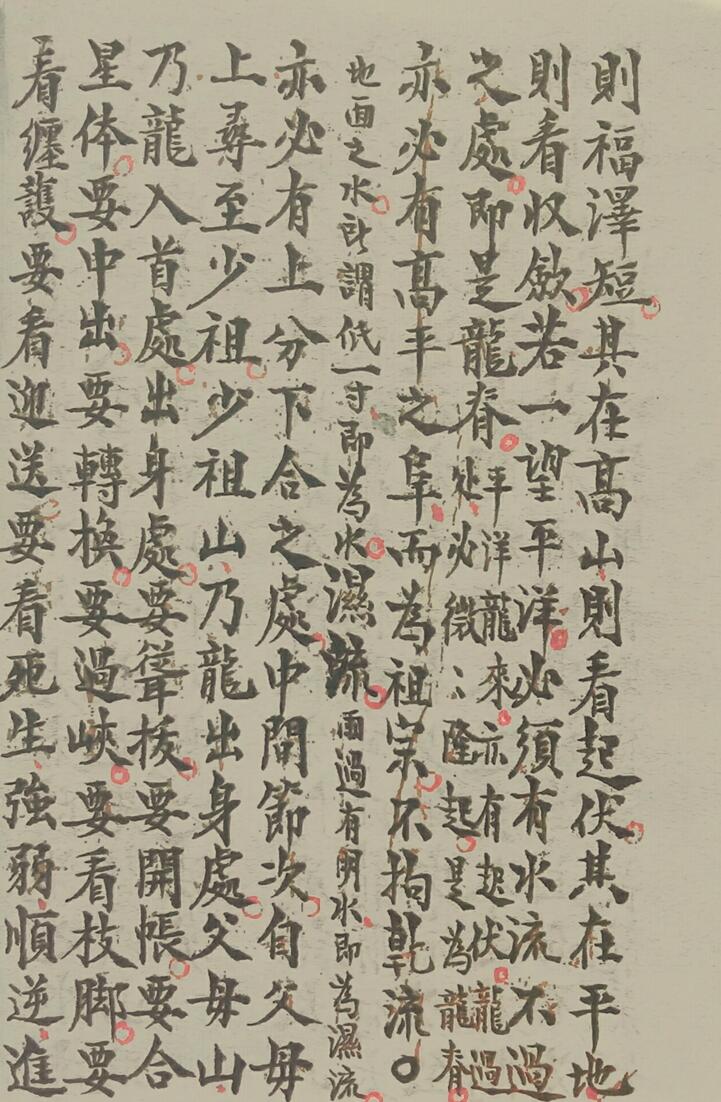 則福澤短其在高山則看起伏其在平地
則看收斂若一望平洋必須有水流不過
之處即是龍脊平洋龍來亦有起伏龍過处必微〻隆起是為龍脊
亦必有高平之阜而為祖宗不拘乾流〇
地面之水所謂低一寸即為水濕流雨過有明水即為濕流
亦必有上分下合之處中間節次自父母
上尋至少祖少祖山乃龍出身處父母山
乃龍入首處出身處要聳拔要開帳要合
星体要中出要轉換要過峽要看枝脚要
看纏護要看迎送要看死生強弱順逆進